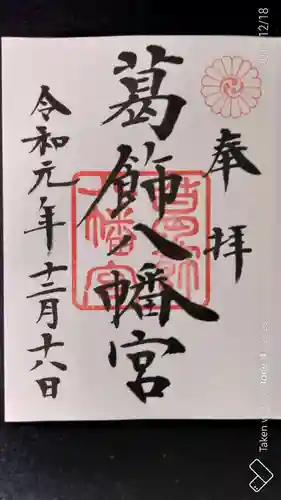 奉拝
葛飾八幡宮
令和元年十二月十八日
12/18
Taken w